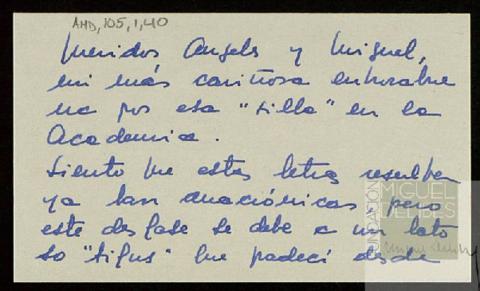 AMD, 105, 1, 40
Queridos Angeles y Miguel,
mi más cariñosa enhorabue
na por esa "silla" en la
Academia.
Siento que estas letras resulten
ya tan anacrónicas pero
este desfase se debe a un lato
so "tifus" que padecí desde
FUNDACIÓN
MIGUEL
DELIBES